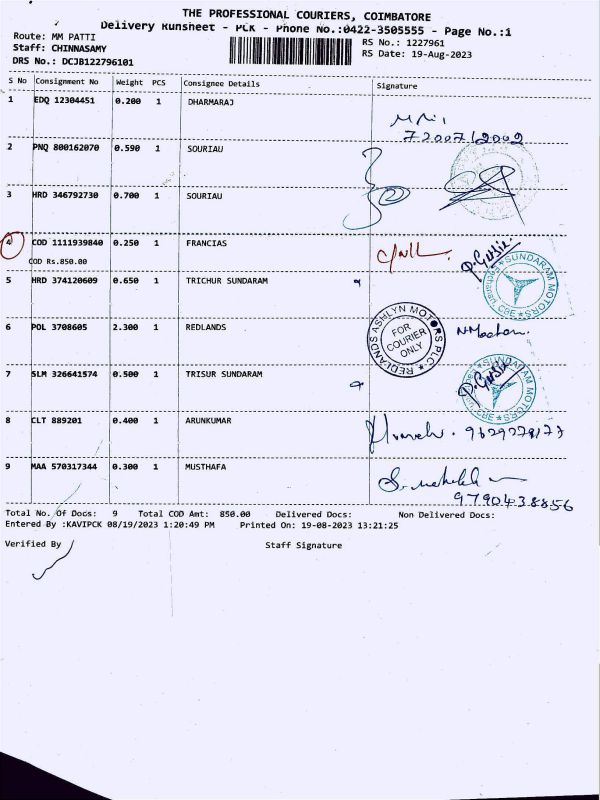 THE PROFESSIONAL COURIERS, COIMBATORE
Delivery Runsheet - PCK - Phone No.:0422-3505555 - Page No.:1
Route: MM PATTI
Staff: CHINNASAMY
DRS No.: DCJB122796101
RS No.: 1227961
RS Date: 19-Aug-2023
S No Consignment No Weight PCS Consignee Details Signature
1 EDQ 12304451 0.200 1 DHARMARAJ
2 PNQ 800162070 0.590 1 SOURIAU
3 HRD 346792730 0.700 1 SOURIAU
4 COD 1111939840 0.250 1 FRANCIAS
COD Rs.850.00
SUNDARAM MOTORS
CBE
5 HRD 374120609 0.650 1 TRICHUR SUNDARAM
6 POL 3708605 2.300 1 REDLANDS
REDLANDS ASHLYN MOTORS PLC
FOR
COURIER
ONLY
7 SLM 326641574 0.500 1 TRISUR SUNDARAM
SUNDARAM MOTORS
CBE
8 CLT 889201 0.400 1 ARUNKUMAR
9 MAA 570317344 0.300 1 MUSTHAFA
9790438856
Total No. Of Docs: 9 Total COD Amt: 850.00 Delivered Docs: Non Delivered Docs:
Entered By :KAVIPCK 08/19/2023 1:20:49 PM Printed On: 19-08-2023 13:21:25
Verified By Staff Signature